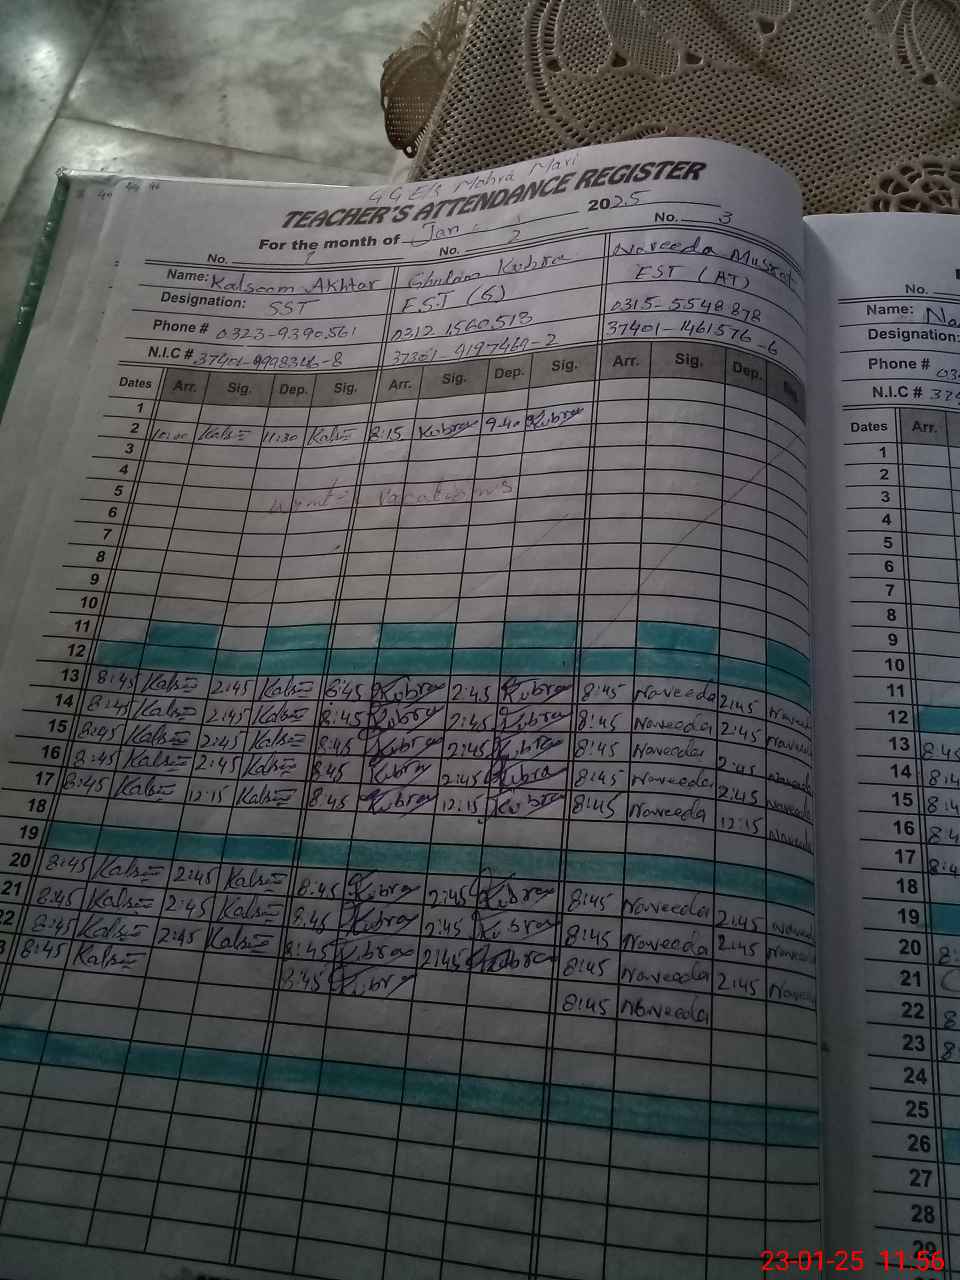 GGE/S Mohra Mari
TEACHER'S ATTENDANCE REGISTER
For the month of Jan. 2025
No. 1 No. 2 No. 3
Name: Kalsoom Akhtar Ghulam Kubra Naveeda Musrat
Designation: SST E.S.T (G) EST (AT)
Phone # 0323-9390561 0312 1560513 0315-5548878
N.I.C # 37401-1461576-6
Dates Arr. Sig. Dep. Sig. Arr. Sig. Dep. Sig. Arr. Sig. Dep.
1
2 10:00 Kals 11:30 Kals 8:15 Kubra 9:40 Kubra
3
4
5 vacations
6
7
8
9
10
11
12
13 8:45 Kals 2:45 Kals 8:45 Kubra 2:45 Kubra 8:45 Naveeda 2:45
14 8:45 Kals 2:45 Kals 8:45 Kubra 2:45 Kubra 8:45 Naveeda 2:45
15 8:45 Kals 2:45 Kals 8:45 Kubra 2:45 Kubra 8:45 Naveeda 2:45
16 8:45 Kals 2:45 Kals 8:45 Kubra 2:45 Kubra 8:45 Naveeda 2:45
17 8:45 Kals 12:15 Kals 8:45 Kubra 12:15 Kubra 8:45 Naveeda 12:15
18
19
20 8:45 Kals 2:45 Kals 8:45 Kubra 2:45 Kubra 8:45 Naveeda 2:45
21 8:45 Kals 2:45 Kals 8:45 Kubra 2:45 Kubra 8:45 Naveeda 2:45
22 8:45 Kals 2:45 Kals 8:45 Kubra 2:45 Kubra 8:45 Naveeda 2:45
3 8:45 Kals 8:45 Kubra 8:45 Naveeda
No.
Name: Na
Designation:
Phone # 03
N.I.C # 374
Dates Arr.
1
2
3
4
5
6
7
8
9
10
11
12
13 8:45
14 8:4
15 8:4
16 8:4
17 8:4
18
19
20 8:
21
22 8
23 8:
24
25
26
27
28
29
23-01-25 11:56